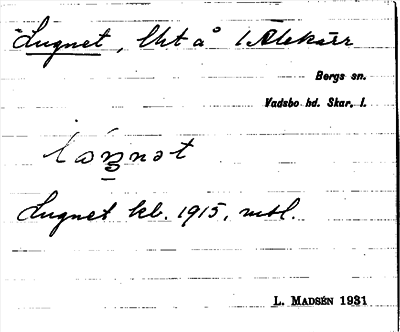 Lugnet, lht å 1 Alekärr
Bergs sn.
Vadsbo hd. Skar. l.
Lugnet kl. 1915, mtl.
L. MADSÉN 1931